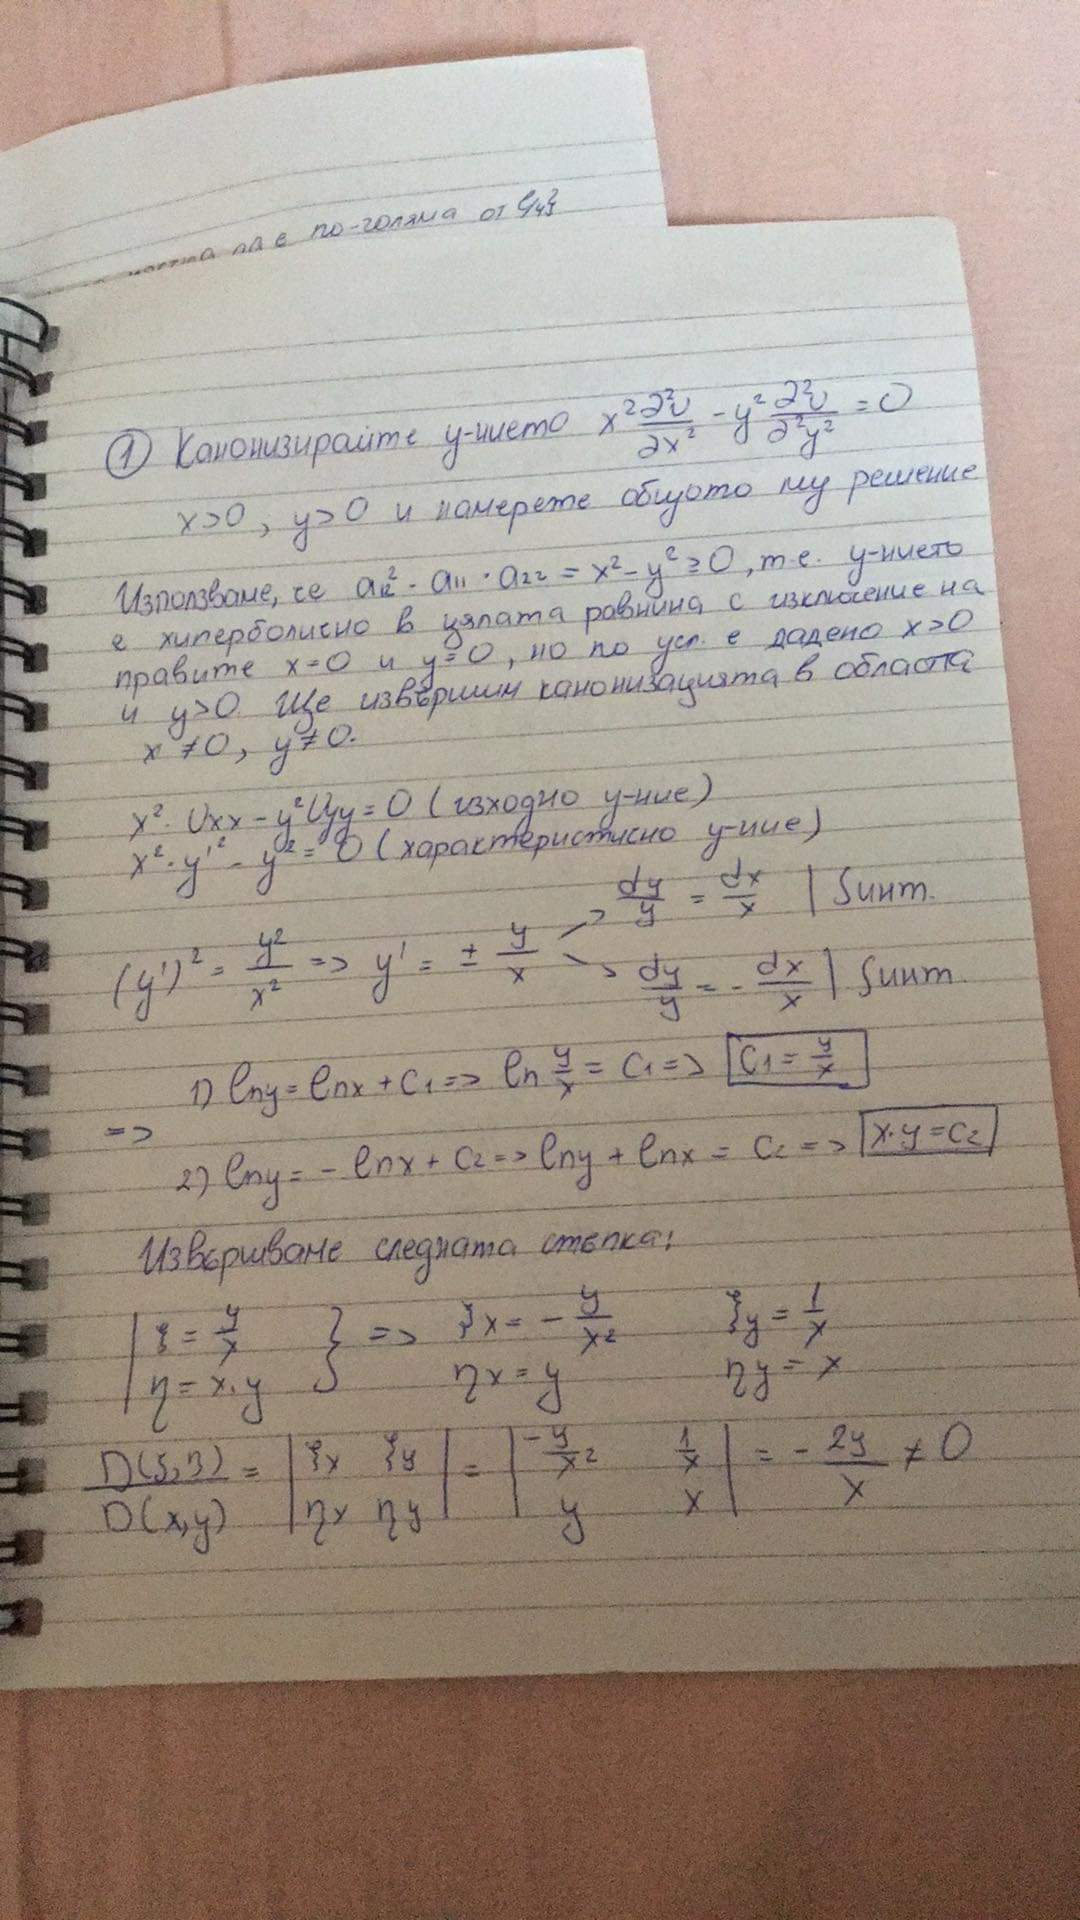 да е по-голяма от
① Канонизирайте у-нието x² ∂²u/∂x² - y² ∂²u/∂²y² = 0
x>0, y>0 и намерете общото му решение
Използваме, че a₁₂² - a₁₁ · a₂₂ = x² - y² ≥ 0, т.е. у-нието
е хиперболично в цялата равнина с изключение на
правите x=0 и y=0, но по усл. е дадено x>0
и y>0. Ще извършим канонизацията в областа
x ≠ 0, y ≠ 0.
x² · Uxx - y² Uyy = 0 (изходно у-ние)
x² · y'² - y² = 0 (характеристично у-ние)
(y')² = y²/x² => y' = ± y/x
dy/y = dx/x | ∫инт.
dy/y = - dx/x | ∫инт.
=> 1) lny = lnx + C₁ => ln y/x = C₁ => C₁ = y/x
2) lny = - lnx + C₂ => lny + lnx = C₂ => x·y = C₂
Извършваме следната стъпка:
ξ = y/x } => ξx = - y/x² ξy = 1/x
η = x.y ηx = y ηy = x
D(ξ,η)/D(x,y) = | ξx ξy | = | -y/x² 1/x | = - 2y/x ≠ 0
| ηx ηy | | y x |